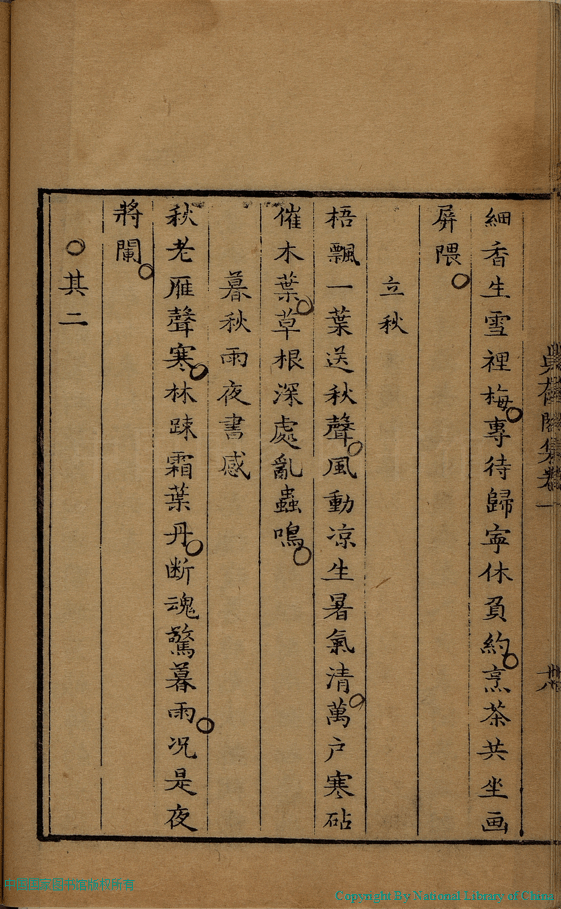 細香生雪裡梅專待歸寧休負約烹茶共坐画
屏隈
立秋
梧飄一葉送秋聲風動涼生暑氣清萬戶寒砧
催木葉草根深處亂蟲鳴
暮秋雨夜書感
秋老雁聲寒林踈霜葉丹断魂驚暮雨况是夜
將闌
其二
Copyright By National Library of China